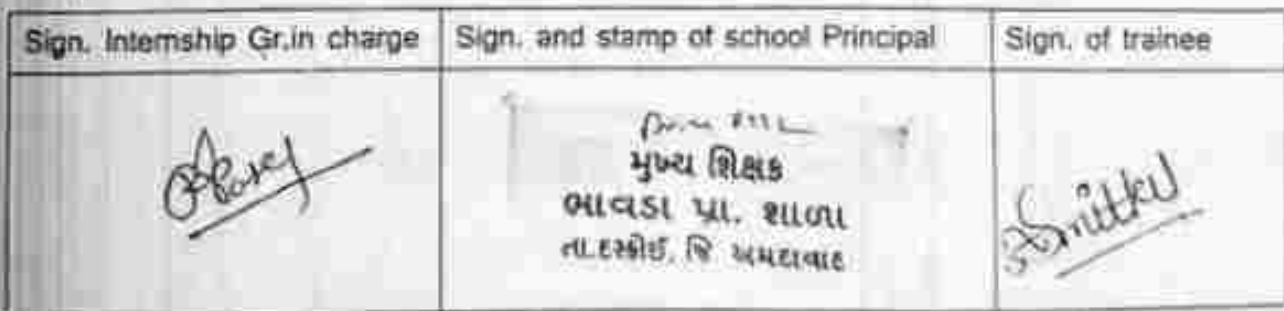 Sign. Internship Gr.in charge
Sign. and stamp of school Principal
Sign. of trainee
મુખ્ય શિક્ષક
ભાવડા પ્રા. શાળા
તા.દસ્ક્રોઈ, જિ અમદાવાદ